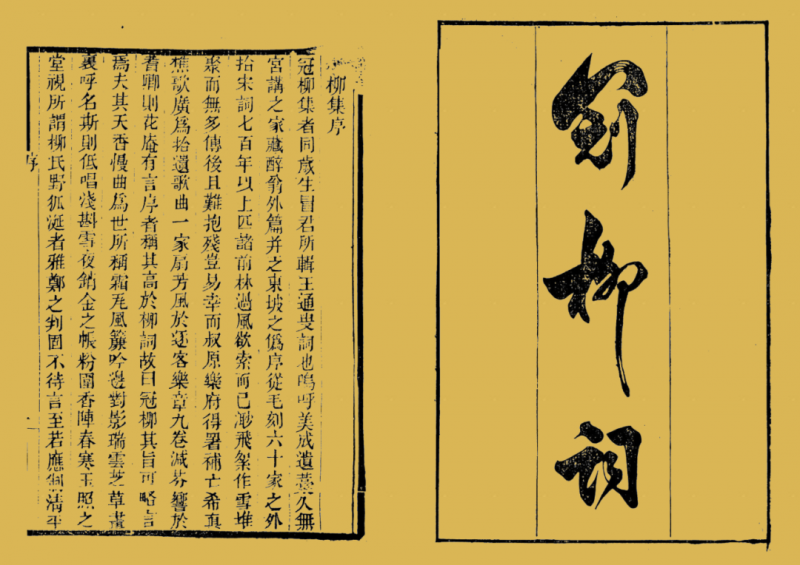 冠柳詞
柳集序
冠柳集者同歲生冒君所輯王通叟詞也嗚呼美成遺藁久無
宮講之家藏醉翁外篇并之東坡之僞序從毛刻六十家之外
拾宋詞七百年以上匹諸前林過風欲索而已渺飛絮作雪堆
聚而無多傳後且難抱殘豈易幸而叔原樂府得署補亡希真
樵歌廣爲拾遺歌曲一家扇芳風於客樂章九卷減芬響於
耆卿則花庵有言序者稱其高於柳詞故曰冠柳其旨可略言
焉夫其天香慢曲爲世所稱霜風簾吟邊對影瑞雲芝草畫
裏呼名斯則低唱淺斟雪夜銷金之帳粉圍香陣春寒玉照之
堂視所謂柳氏野狐涎者雅鄭之判固不待言至若應制清平
序
一